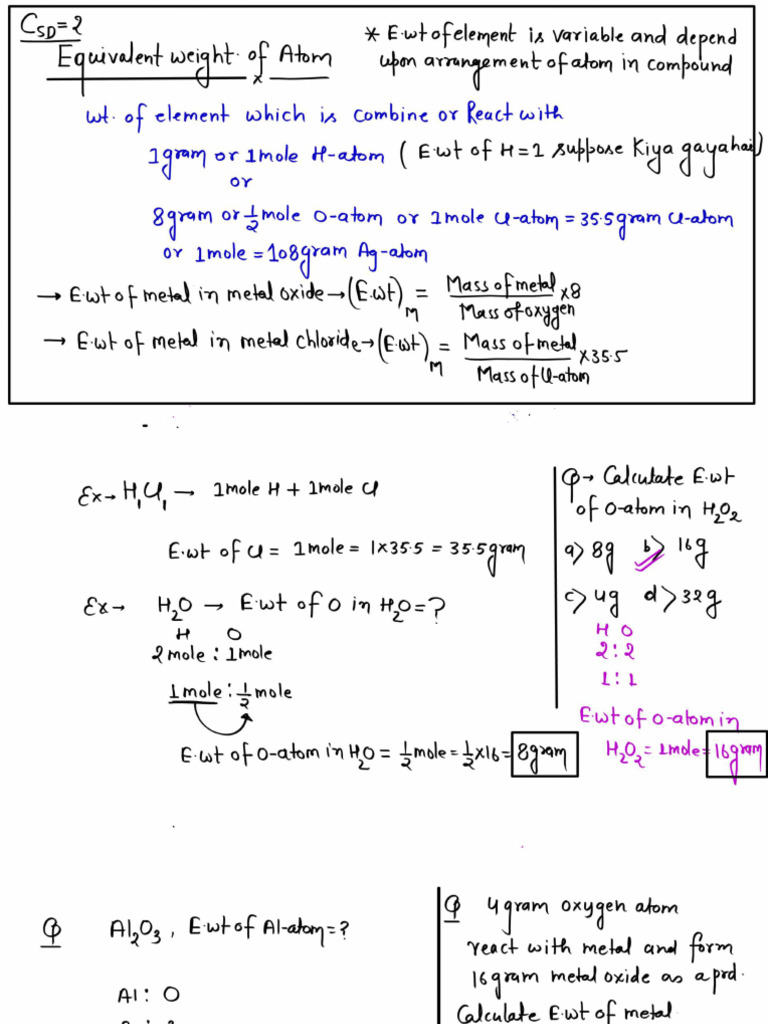 C_SD=2
Equivalent weight of Atom
* E.wt of element is variable and depend
upon arrangement of atom in compound
wt. of element which is combine or React with
1gram or 1mole H-atom ( E.wt of H=1 suppose Kiya gaya hai)
or
8gram or 1/2 mole O-atom or 1mole Cl-atom = 35.5gram Cl-atom
or 1mole = 108gram Ag-atom
→ E.wt of metal in metal oxide → (E.wt)_M = Mass of metal / Mass of oxygen × 8
→ E.wt of metal in metal chloride → (E.wt)_M = Mass of metal / Mass of Cl-atom × 35.5
Ex → H₁Cl₁ → 1mole H + 1mole Cl
E.wt of Cl = 1mole = 1×35.5 = 35.5gram
Ex → H₂O → E.wt of O in H₂O = ?
H O
2mole : 1mole
1mole : 1/2 mole
E.wt of O-atom in H₂O = 1/2 mole = 1/2 ×16 = 8gram
Q → Calculate E.wt
of O-atom in H₂O₂
a> 8g b> 16g
c> 4g d> 32g
H O
2 : 2
1 : 1
E.wt of O-atom in
H₂O₂ = 1mole = 16gram
Q Al₂O₃, E.wt of Al-atom = ?
Al : O
Q 4gram oxygen atom
react with metal and form
16gram metal oxide as a prd.
Calculate E.wt of metal